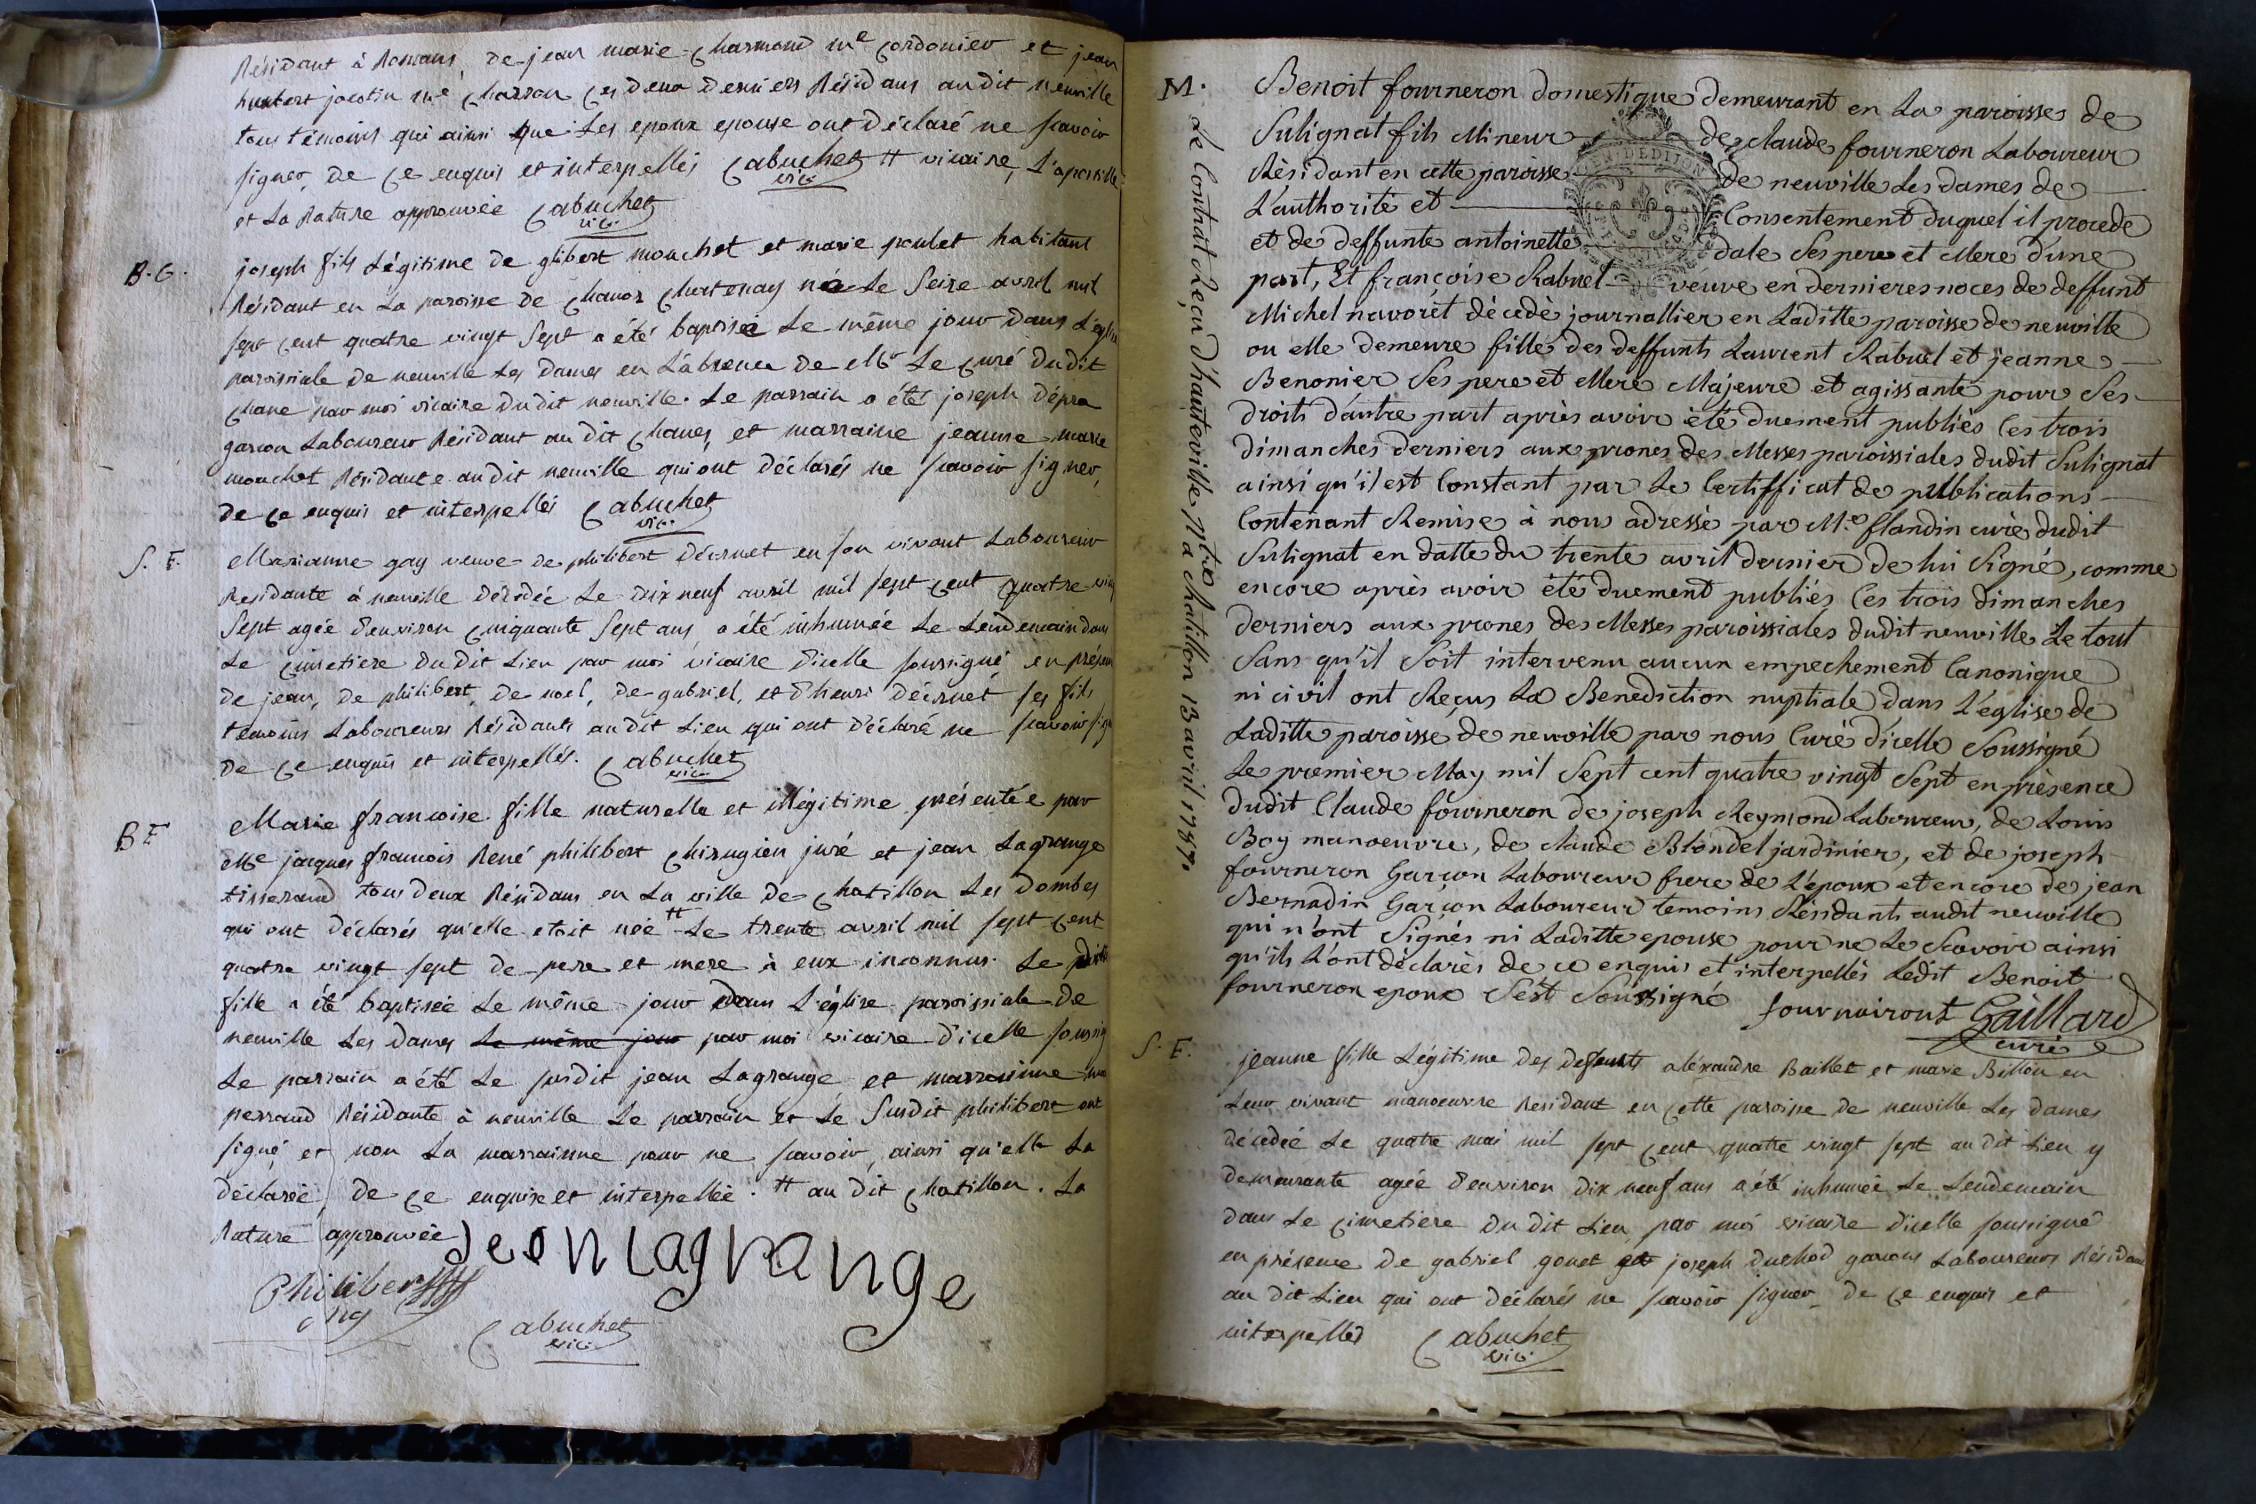 Résidant à Romans, de jean marie Charmond me Cordonier et jean
humbert jacotin me Charron ces deux derniers Résidans audit neuville
tous témoins qui ainsi que Les epoux epouse ont déclaré ne scavoir
signer, de ce enquis et interpellés Cabuchet tt vicaire, L'apostille
vic:
et La Rature approuvée Cabuchet
vic:
B. G.
joseph fils Légitime de glibert mouchet et marie poulet habitant
Résidant en La paroisse de Chanoz Chatenay né Le Seize avril mil
sept cent quatre vingt Sept a été baptisé Le même jour dans L'églis
paroissiale de neuville Les dames en L'absence de Mr Le Curé dudit
Chane par moi vicaire dudit neuville. Le parrain a été joseph dépra
garcon Laboureur Résidant au dit Chanes, et marraine jeanne marie
mouchet Résidante audit neuville qui ont déclarés ne scavoir signer,
de ce enquis et interpellés Cabuchet
vic:
S. F.
Marianne gay veuve de philibert décruet en son vivant Laboureur
Residante à neuville décédée Le dix neuf avril mil sept cent quatre ving
Sept agée d'environ cinquante Sept ans, a été inhumée Le Lendemain dans
Le cimetiere dudit Lieu par moi vicaire dicelle soussigné, en présen
de jean, de philibert, de noel, de gabriel, et d'henri décruet ses fils
temoins Laboureurs Résidants audit Lieu qui ont déclaré ne scavoir sig
de ce enquis et interpellés. Cabuchet
vic:
B F
Marie francoise fille naturelle et illégitime présentée par
Me jacques francois René philibert Chirugien juré et jean Lagrange
tisserand tous deux Résidans en La ville de Chatillon Les Dombes
qui ont déclarés qu'elle etoit née tt Le trente avril mil sept cent
quatre vingt sept de pere et mere à eux inconnus. Le
fille a été baptisée Le même jour dans L'église paroissiale de
neuville Les dames Le même jour par moi vicaire d'icelle soussig
Le parrain a été Le susdit jean Lagrange et marrainne
perraud Résidante à neuville Le parrain et Le Susdit philibert ont
signé et non La marrainne pour ne scavoir, ainsi qu'elle La
déclarée, de ce enquise et interpellée. tt au dit Chatillon. La
Rature approuvée
Jeon lagrange
Philibert
Cabuchet
vic:
M.
Le Contrat Reçu d'hauteville ntre a chatillon 13 avril 1787.
Benoit fourneron domestique demeurant en La paroisse de
Sulignat fils Mineur de claude fourneron Laboureur
Résidant en cette paroisse de neuville Les dames de
L'authorité et Consentement duquel il procede
et de deffunte antoinette dale Ses pere et Mere d'une
part, Et françoise Rabuel veuve en dernieres noces de deffunt
Michel navorét décédé journallier en Laditte paroisse de neuville
ou elle demeure fille des deffunts Laurent Rabuel et jeanne
Benonier Ses pere et Mere Majeure et agissante pour Ses
droits d'autre part après avoir été duement publiés les trois
dimanches derniers aux prones des Messes paroissiales dudit Sulignat
ainsi qu'il est Constant par Le Certifficat de publications
Contenant Remise à nous adressé par M.e flandin curé dudit
Sulignat en datte du trente avril dernier de lui Signé, comme
encore après avoir été duement publiés les trois dimanches
derniers aux prones des Messes paroissiales dudit neuville Le tout
Sans qu'il Soit intervenu aucun empechement Canonique
ni civil ont Reçus La Benediction nuptiale dans L'église de
Laditte paroisse de neuville par nous Curé d'icelle Soussigné
Le premier May mil Sept cent quatre vingt Sept en présence
dudit Claude fourneron de joseph Reymond Laboureur, de Louis
Boy manoeuvre, de claude Blondel jardinier, et de joseph
fourneron Garçon Laboureur frere de L'époux et encore de jean
Bernadin Garçon Laboureur temoins Résidants audit neuville
qui n'ont Signés ni Laditte epouse pour ne Le Scavoir ainsi
qu'ils L'ont déclarés de ce enquis et interpellés Ledit Benoit
fourneron epoux S'est Soussigné fournairont Gaillard
curé
S. F.
jeanne fille Légitime des defunts aléxandre Baillet et marie Billon en
Leur vivant manoeuvre Residant en cette paroisse de neuville Les dames
décédée Le quatre mai mil sept cent quatre vingt sept audit Lieu y
demeurante agée d'environ dix neuf ans a été inhumée Le Lendemain
dans Le cimetiere dudit Lieu par moi vicaire dicelle soussigné
en présence de gabriel gonet et joseph duchod garcons Laboureurs Résidans
au dit Lieu qui ont déclarés ne scavoir signer de ce enquis et
interpellés Cabuchet
vic: